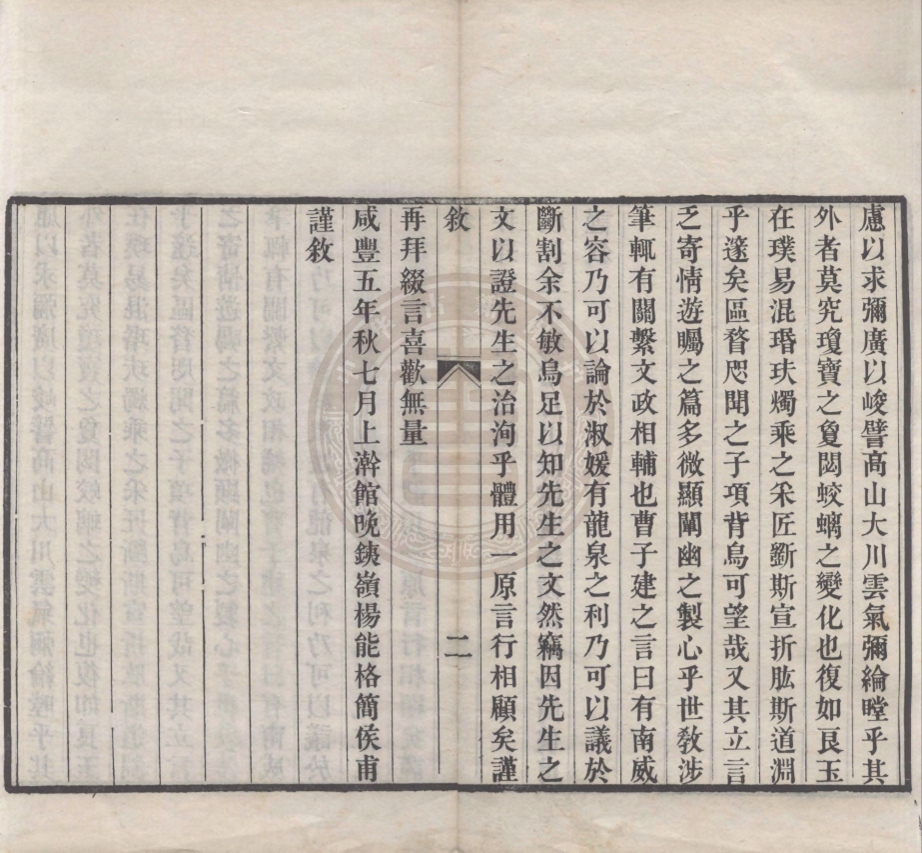 慮以求彌廣以峻譬高山大川雲氣彌綸瞠乎其
外者莫究瓊寶之敻閟蛟螭之變化也復如良玉
在璞易混瑉玞燭乘之釆匠斵斯宣折肱斯道淵
乎邃矣區瞀咫聞之子項背烏可望哉又其立言
之寄情遊矚之篇多微顯闡幽之製心乎世教涉
筆輒有關繫文政相輔也曹子建之言曰有南威
之容乃可以論於淑媛有龍泉之利乃可以議於
斷割余不敏烏足以知先生之文然竊因先生之
文以證先生之治洵乎體用一原言行相顧矣謹
敘
二
再拜綴言喜歡無量
咸豐五年秋七月上澣館晚銕嶺楊能格簡侯甫
謹敘